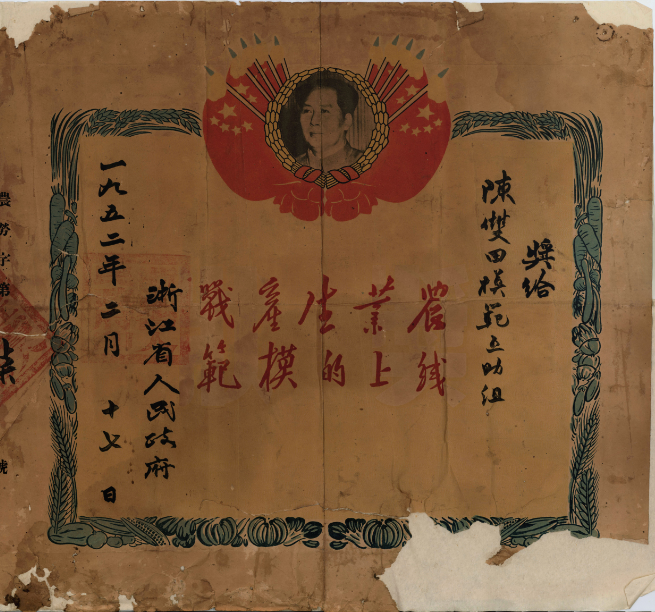 獎給
陳雙田模範互助組
農業生產戰
綫上的模範
浙江省人民政府
一九五二年二月十七日
農勞字第
號